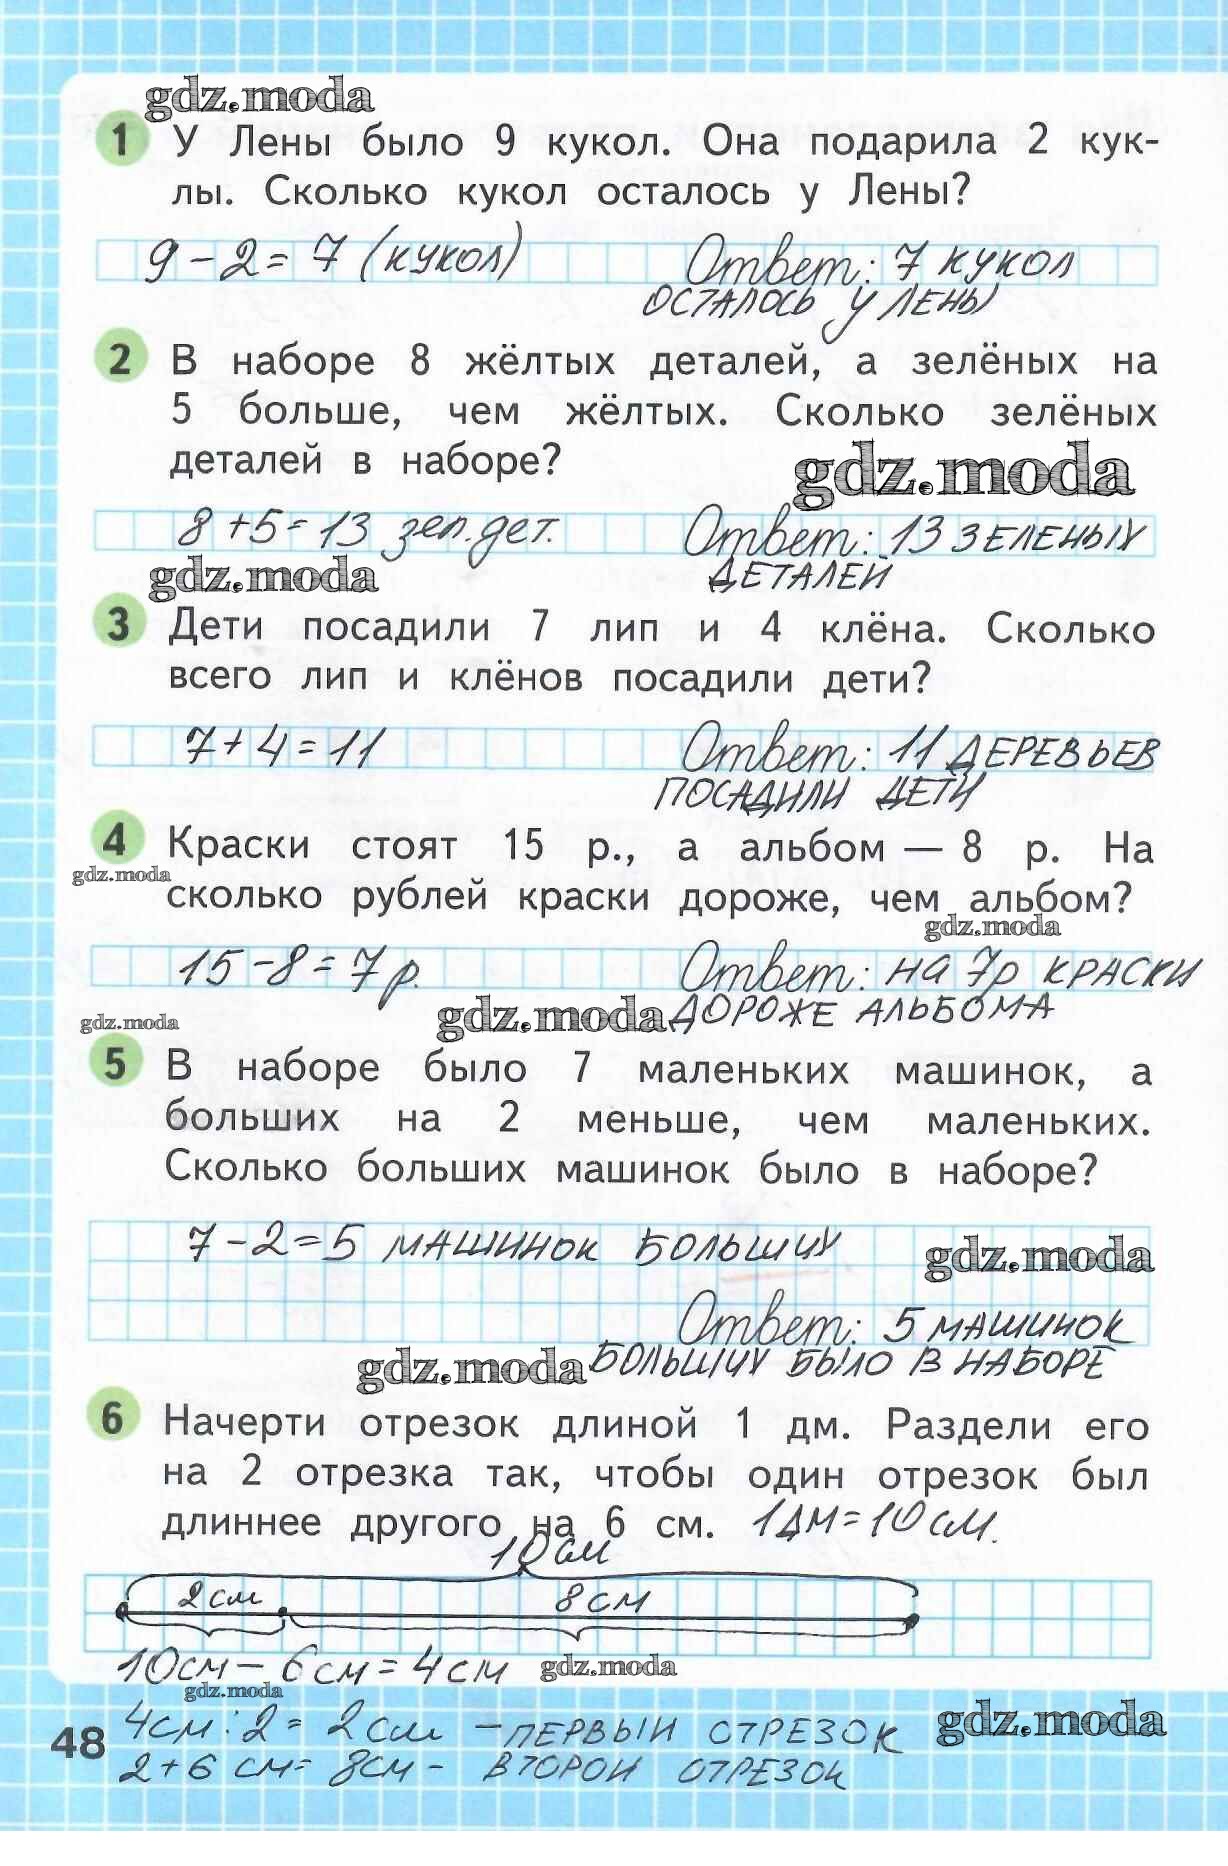 gdz.moda
1 У Лены было 9 кукол. Она подарила 2 кук-
лы. Сколько кукол осталось у Лены?
9 - 2 = 7 (кукол) Ответ: 7 кукол
осталось у Лены
2 В наборе 8 жёлтых деталей, а зелёных на
5 больше, чем жёлтых. Сколько зелёных
деталей в наборе?
gdz.moda
8 + 5 = 13 зел. дет. Ответ: 13 зеленых
деталей
gdz.moda
3 Дети посадили 7 лип и 4 клёна. Сколько
всего лип и клёнов посадили дети?
7 + 4 = 11 Ответ: 11 деревьев
посадили дети
4 Краски стоят 15 р., а альбом — 8 р. На
gdz.moda
сколько рублей краски дороже, чем альбом?
gdz.moda
15 - 8 = 7 р. Ответ: на 7р краски
gdz.moda gdz.moda дороже альбома
5 В наборе было 7 маленьких машинок, а
больших на 2 меньше, чем маленьких.
Сколько больших машинок было в наборе?
7 - 2 = 5 машинок больших
gdz.moda
Ответ: 5 машинок
gdz.moda больших было в наборе
6 Начерти отрезок длиной 1 дм. Раздели его
на 2 отрезка так, чтобы один отрезок был
длиннее другого на 6 см. 1дм = 10 см.
10 см
2 см 8 см
10см - 6 см = 4 см gdz.moda
gdz.moda
4см : 2 = 2 см - первый отрезок gdz.moda
48
2 + 6 см = 8см - второй отрезок